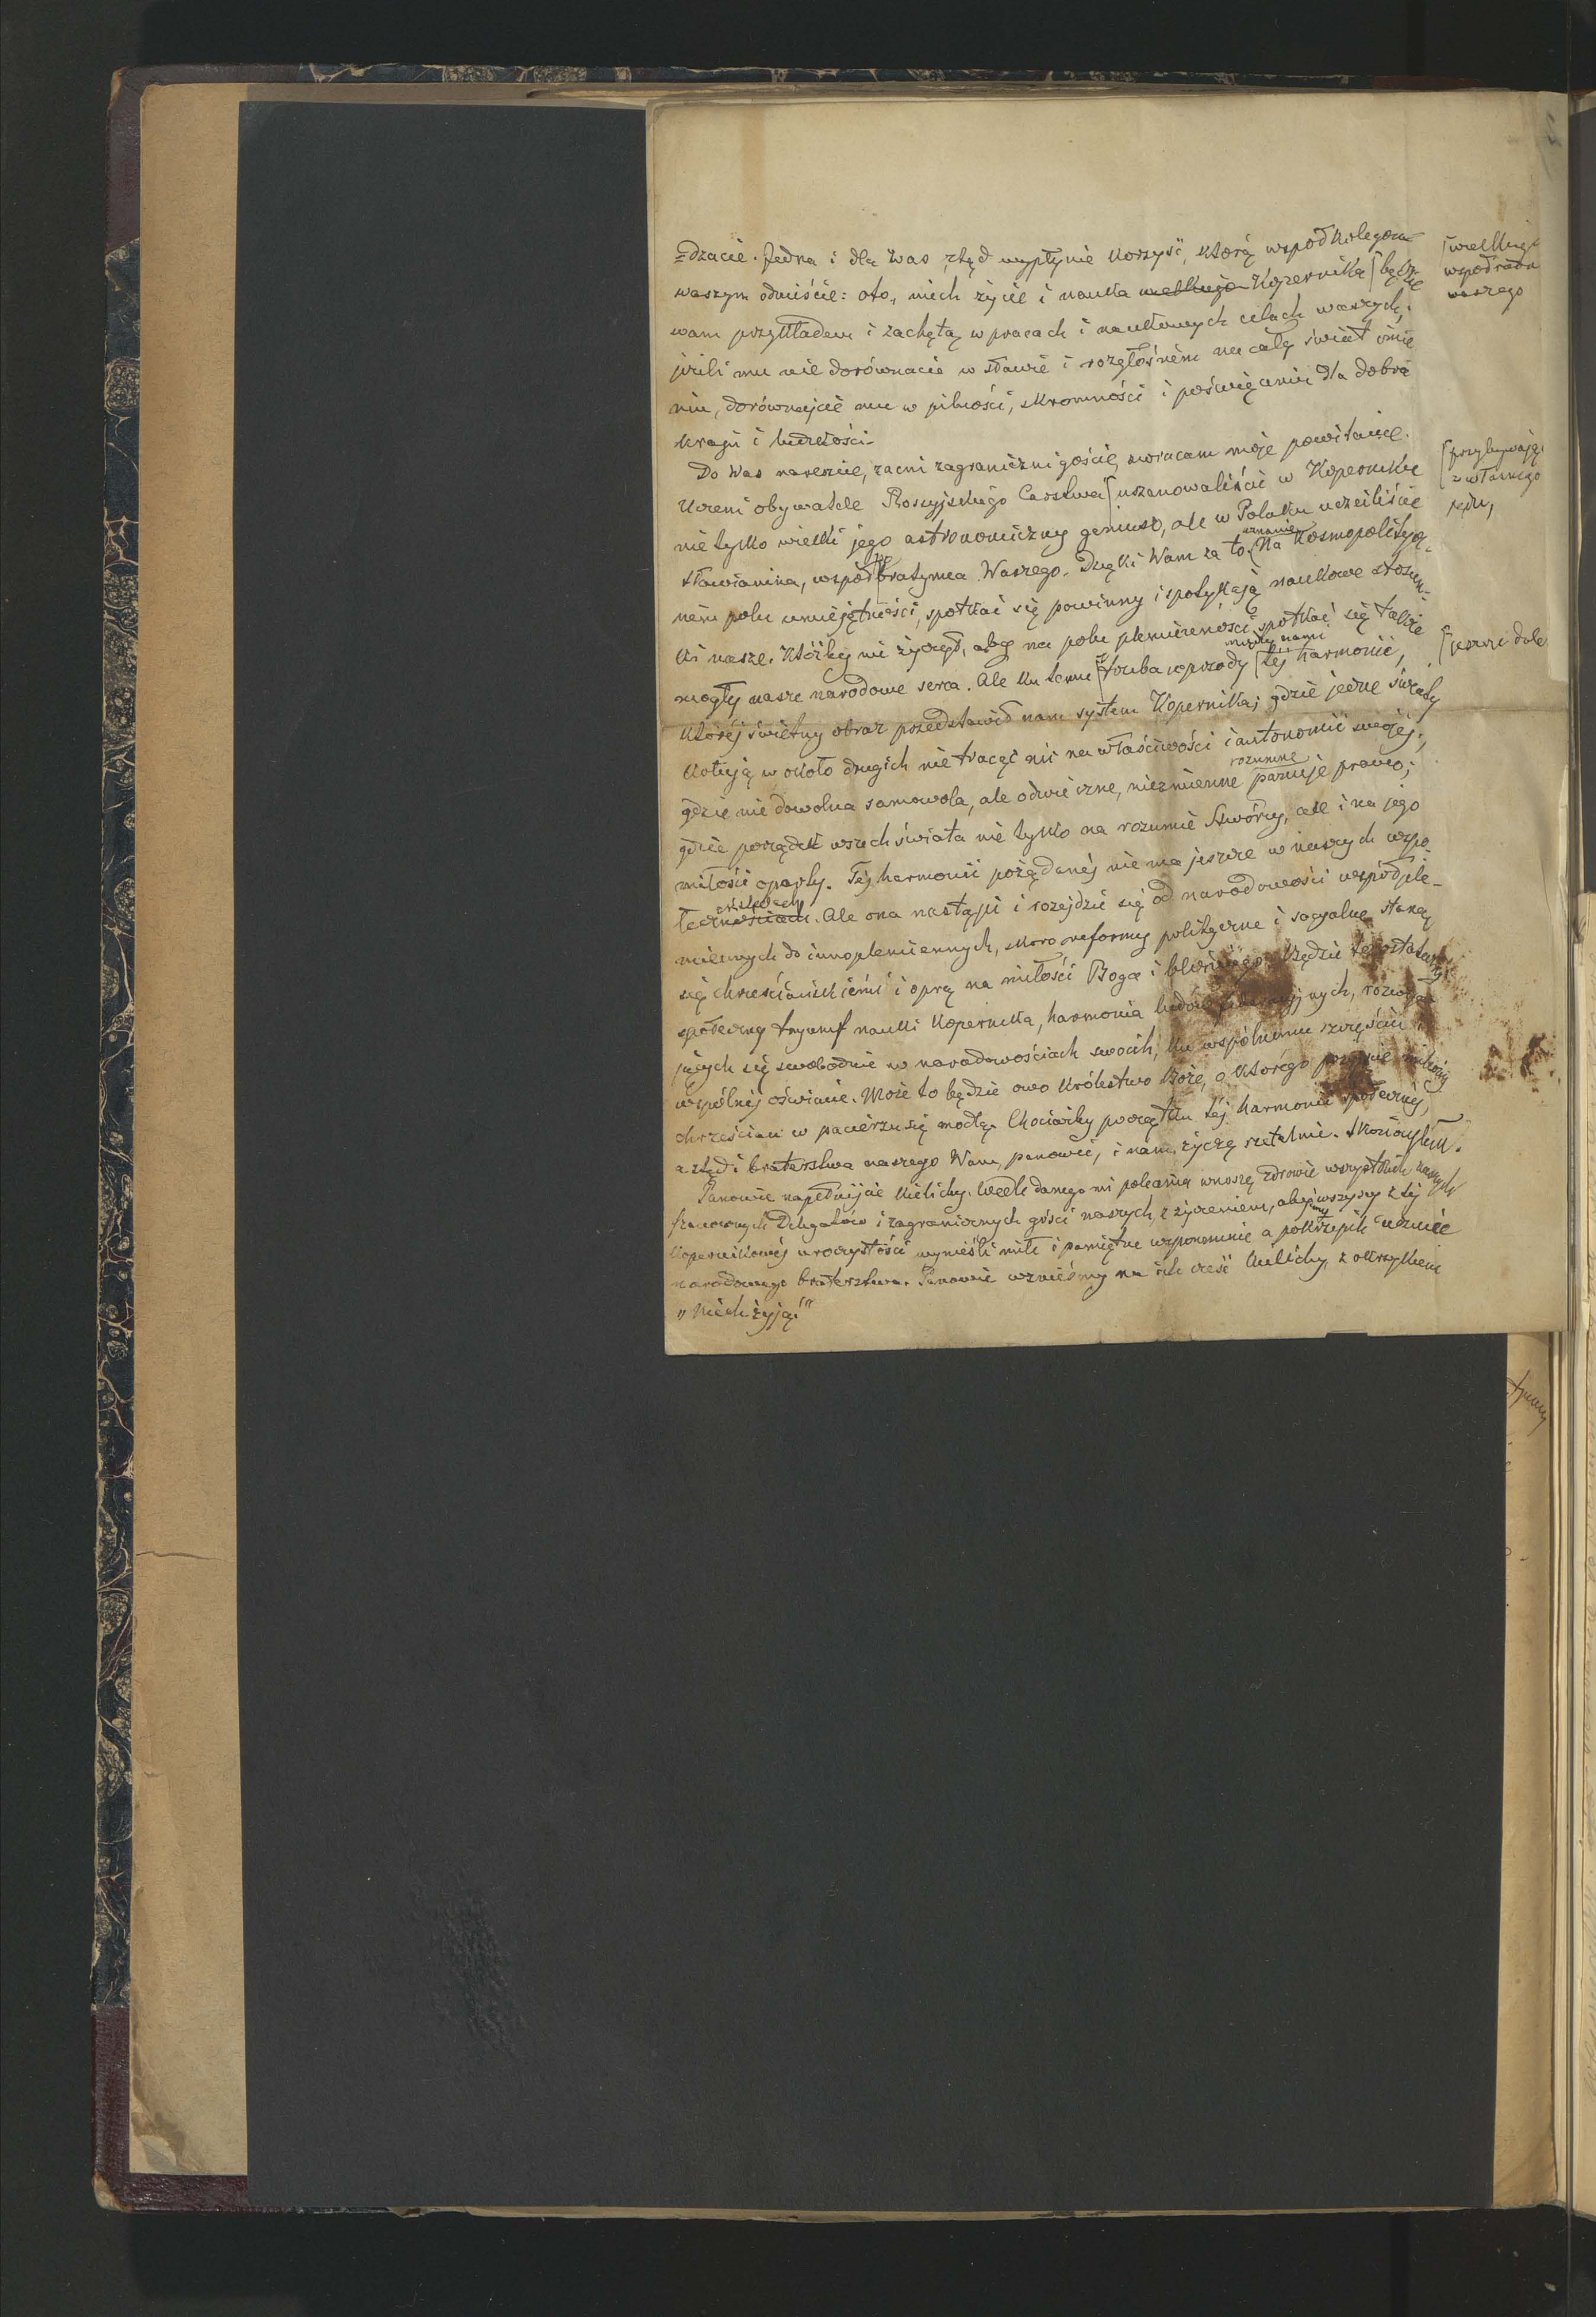 =dzacie. Jedna i dla Was ztąd wypłynie korzyść, którą współkolegom
waszym odnieście: oto, niech życie i nauka wielkiego Kopernika będzie
[wielkiego
współrodaka
waszego
wam przykładem i zachętą w pracach i naukowych celach waszych;
jeżeli mu nie dorównacie w sławie i rozgłośném na cały świat imie
niu, dorównajcie mu w pilności, skromności i poświęceniu dla dobra
kraju i ludzkości.
Do Was nareszcie, zacni zagraniczni goście, zwracam moje powitanie.
Uczeni obywatele Rossyjskiego Carstwa [uszanowaliście w Koperniku
[przybywający
z własnego
pędu,
nie tylko wielki jego astronomiczny geniusz, ale w Polaku uczciliście
Sławianina, współbratymca Waszego. Dzięki Wam za to uznanie. Na kosmopolitycz-
ném polu umiejętności, spotkać się powinny i spotykają naukowe stosun-
ki nasze. Któżby nie życzył, aby na polu plemienności spotkać się także
mogły nasze narodowe serca. Ale ku temu [trzeba wprzódy między nami téj harmonii,
[jeszcze dale
któréj świetny obraz przedstawił nam system Kopernika; gdzie jedne światy
kołują w około drugich nie tracąc nic na właściwości i autonomii swojéj;
gdzie nie dowolna samowola, ale odwieczne, niezmienne rozumne panuje prawo;
gdzie porządek wszechświata nie tylko na rozumie Stwórcy, ale i na jego
miłości oparty. Téj harmonii pożądanéj nie ma jeszcze w naszych społe
łecznościach. Ale ona nastąpi i rozejdzie się od narodowości współple-
miennych do innoplemiennych, skoro reformy polityczne i socyalne staną
się chrześciańskiemi i oprą na miłości Boga i bliźniego. Będzie to ostateczny
społeczny tryumf nauki Kopernika, harmonia ludów, rozwija
jących się swobodnie w narodowościach swoich, ku wspólnemu szczęściu i
wspólnéj oświacie. Może to będzie owo Królestwo Boże, o którego przyjście miliony
chrześcian w pacierzu się modlą. Chociażby początku téj harmonii społecznéj,
a ztąd i braterstwa naszego Wam, panowie, i nam życzę rzetelnie. Skończyłem.
Panowie napełnijcie kielichy. Wedle danego mi polecenia wnoszę zdrowie wszystkich naszych
szanownych Delegatów i zagranicznych gości naszych, z życzeniem, abyśmy wszyscy z téj
Kopernikowéj uroczystości wynieśli miłe i pamiętne wspomnienie a pokrzepili uczucie
narodowego braterstwa. Panowie wznieśmy na ich cześć kielichy, z okrzykiem
„Niech żyją!"